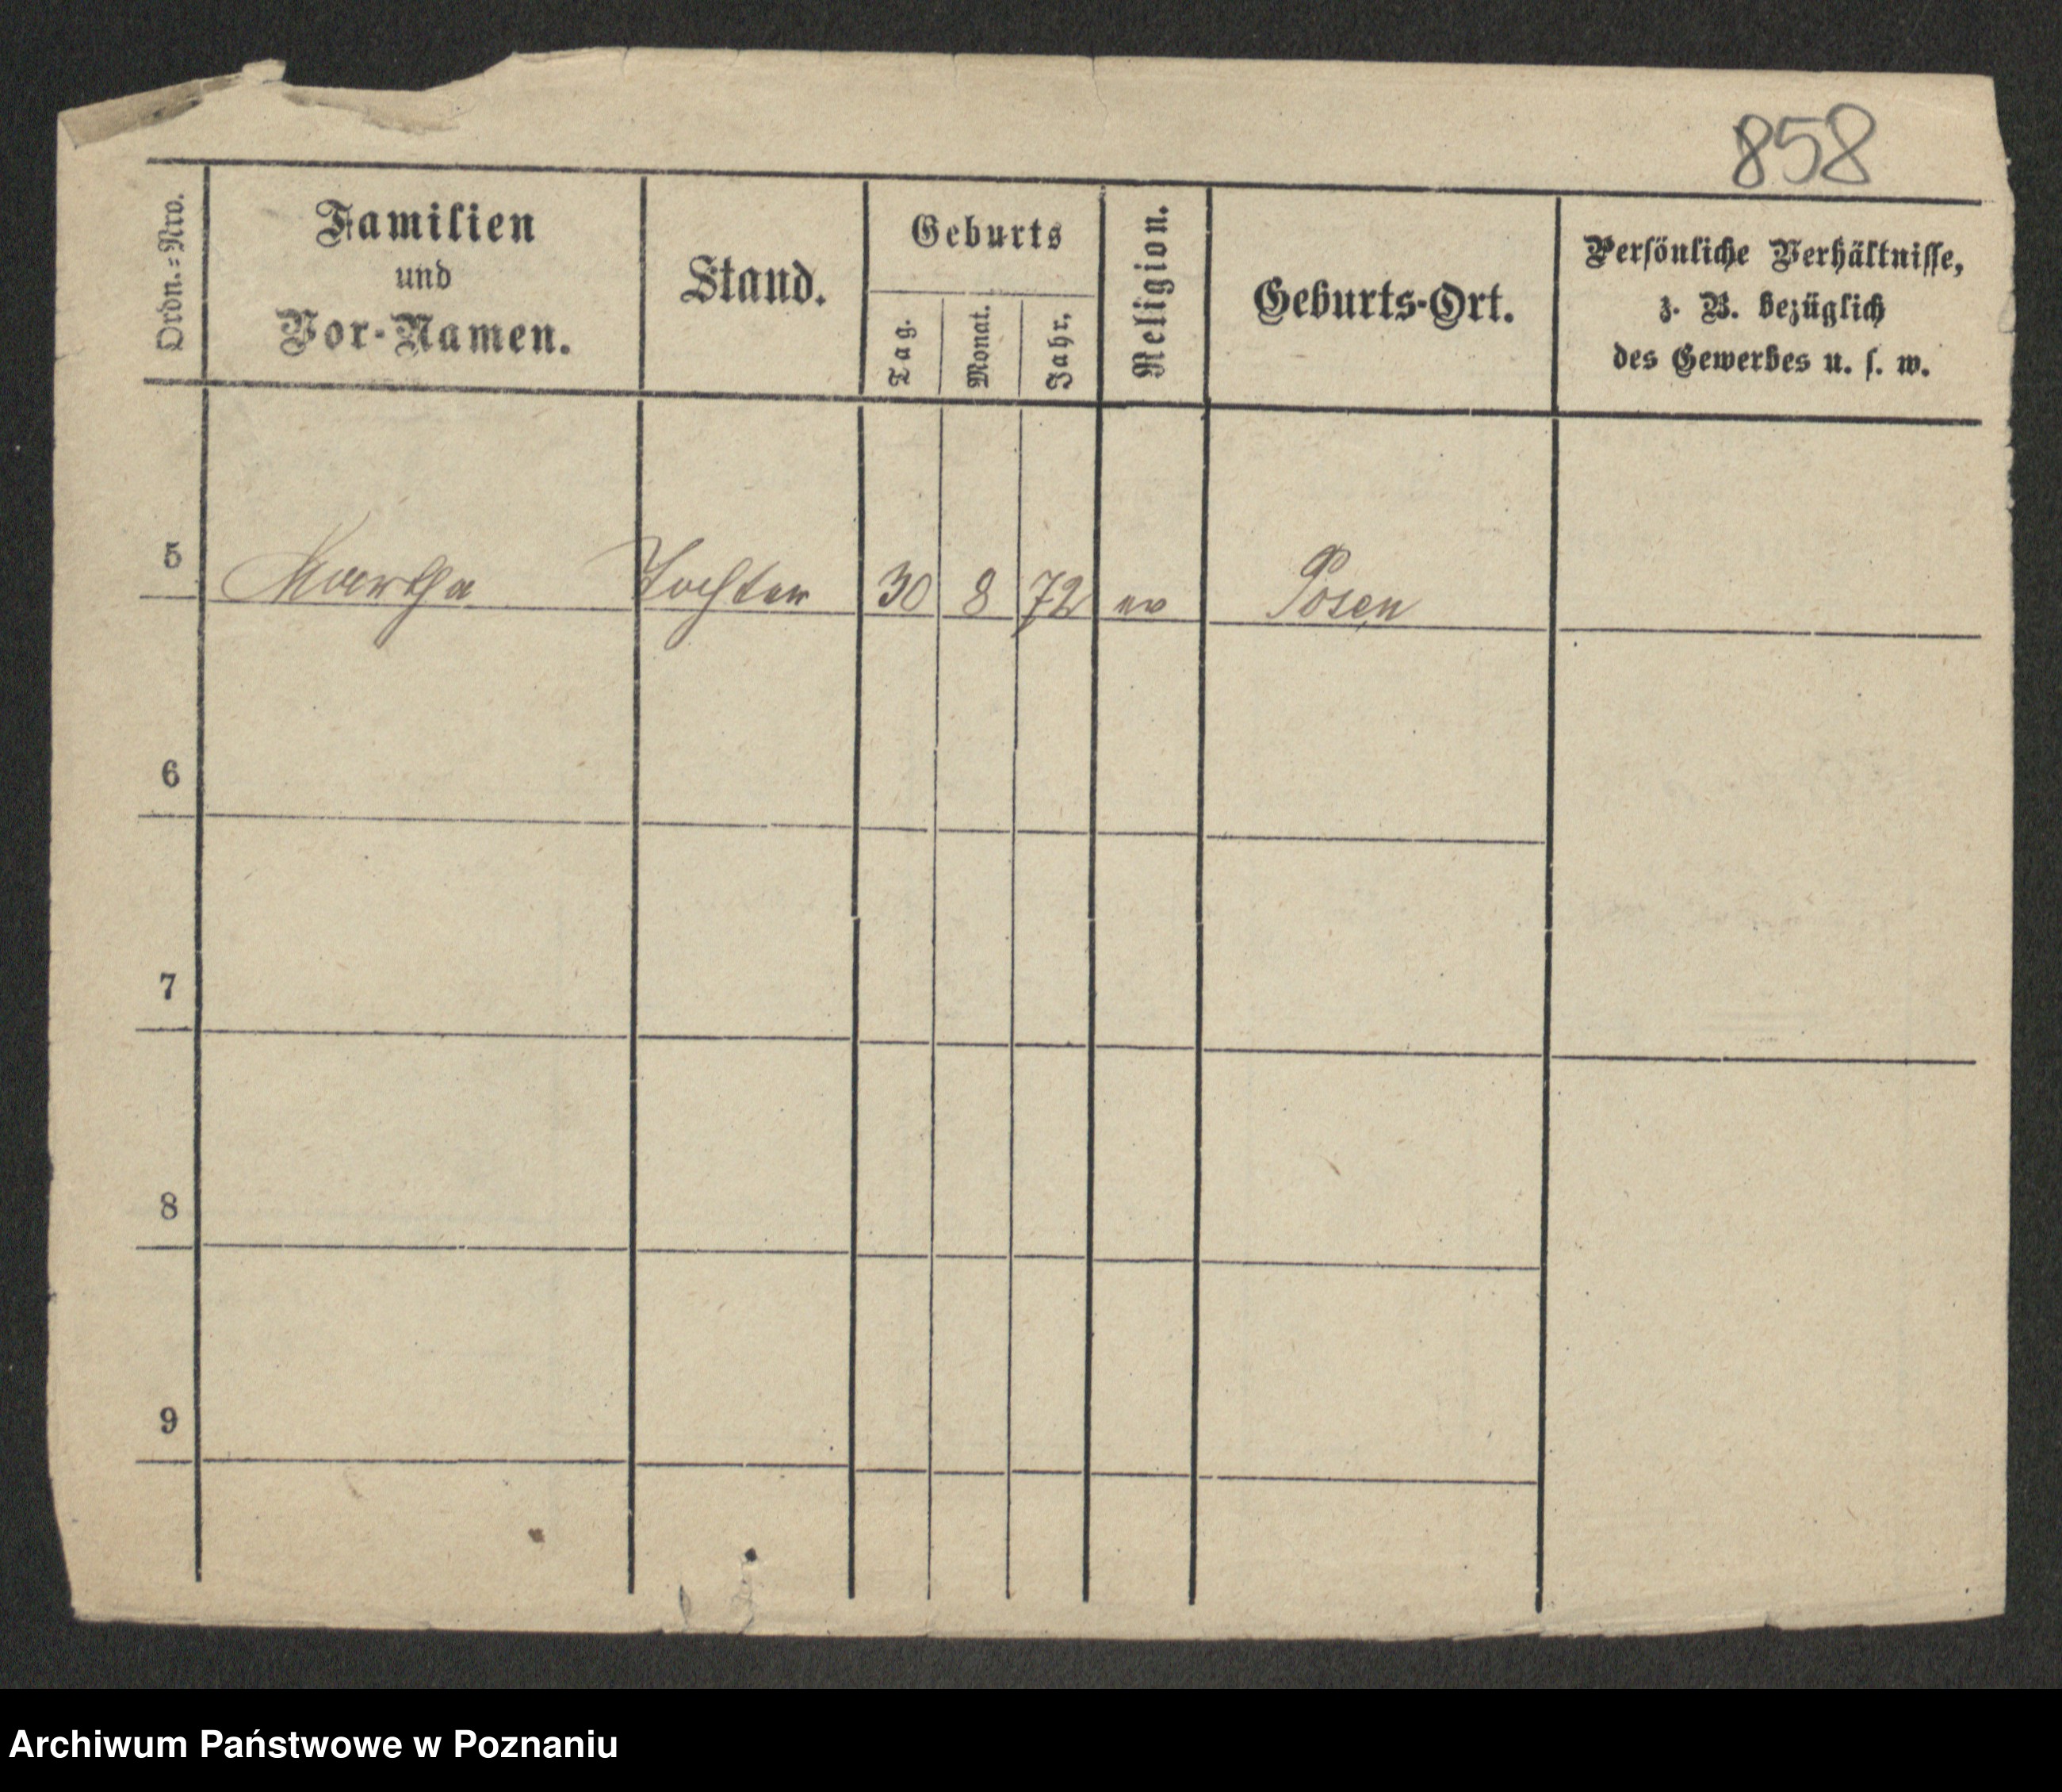 858
Ordn.=Nro.
Familien
und
Vor-Namen.
Stand.
Geburts
Tag.
Monat.
Jahr.
Religion.
Geburts-Ort.
Persönliche Verhältnisse,
z. B. bezüglich
des Gewerbes u. s. w.
5 Martha Tochter 30 8 72 ev Posen
6
7
8
9
Archiwum Państwowe w Poznaniu